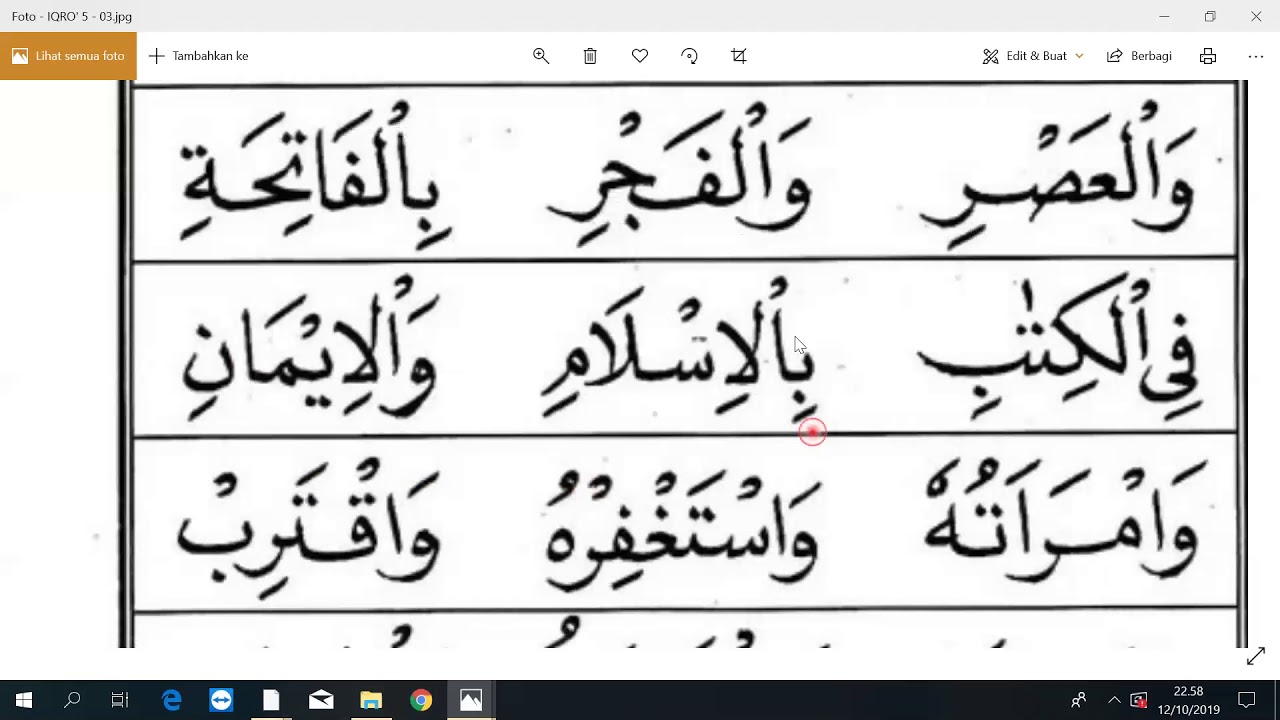 Foto - IQRO' 5 - 03.jpg
Lihat semua foto Tambahkan ke Edit & Buat Berbagi
وَالْعَصْرِ وَالْفَجْرِ بِالْفَاتِحَةِ
فِى الْكِتٰبِ بِالْاِسْلَامِ وَالْاِيْمَانِ
وَامْرَاَتُهٗ وَاسْتَغْفِرْهُ وَاقْتَرِبْ
22.58
12/10/2019